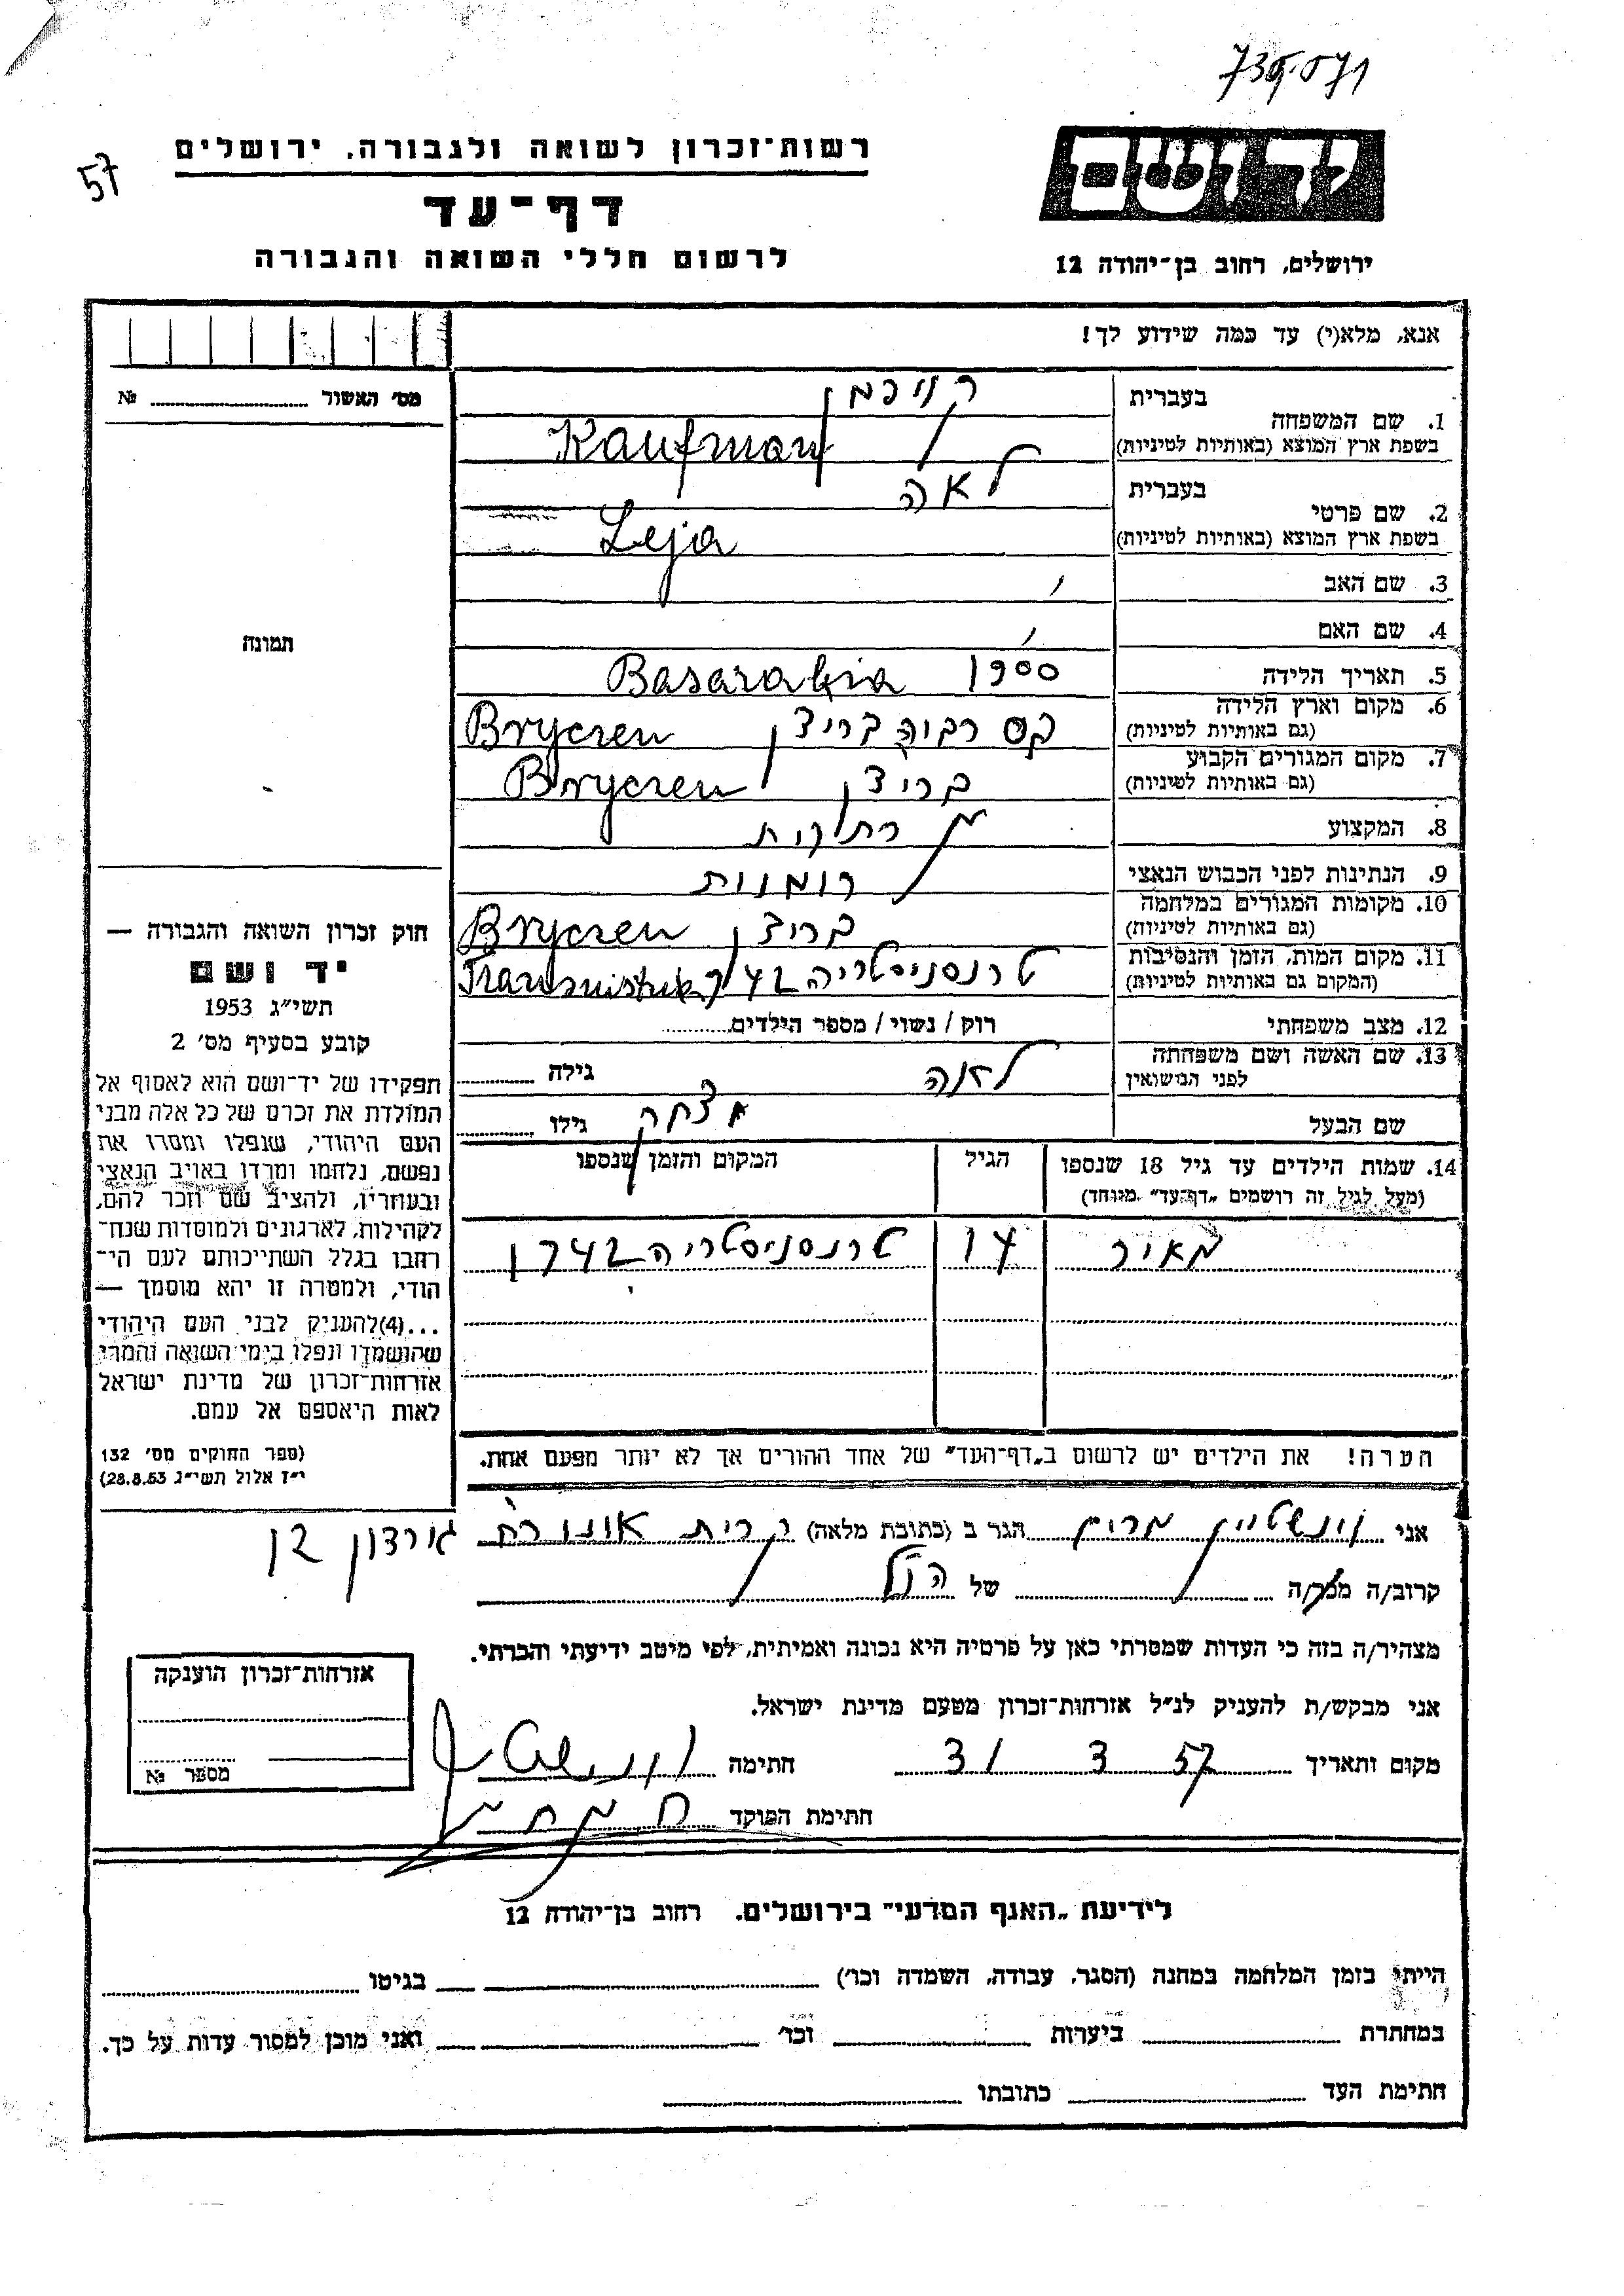 57
רשות־זכרון לשואה ולגבורה, ירושלים
דף־עד
לרשום חללי השואה והגבורה
יד ושם
ירושלים, רחוב בן־יהודה 12
אנא, מלא(י) עד כמה שידוע לך!
מס׳ האשור № 
תמונה
1. שם המשפחה
בעברית
בשפת ארץ המוצא (באותיות לטיניות)
Kaufman
2. שם פרטי
בעברית לאה
בשפת ארץ המוצא (באותיות לטיניות) Leja
3. שם האב
4. שם האם
5. תאריך הלידה 1900 Basarabia
6. מקום וארץ הלידה
(גם באותיות לטיניות) בריצן Bryczen
7. מקום המגורים הקבוע
(גם באותיות לטיניות) בריצן Bryczen
8. המקצוע
9. הנתינות לפני הכבוש הנאצי רומנית
10. מקומות המגורים במלחמה
(גם באותיות לטיניות) בריצן Bryczen
11. מקום המות, הזמן והנסיבות
(המקום גם באותיות לטיניות) טרנסניסטריה 942
12. מצב משפחתי רוק / נשוי / מספר הילדים
13. שם האשה ושם משפחתה
לפני הנישואין לאה גילה
שם הבעל גילו
14. שמות הילדים עד גיל 18 שנספו
(מעל לגיל זה רושמים „דף־עד״ מיוחד)
הגיל
המקום והזמן שנספו
מאיר 14 טרנסניסטריה 1942
הערה! את הילדים יש לרשום ב„דף־העד״ של אחד ההורים אך לא יותר מפעם אחת.
חוק זכרון השואה והגבורה —
יד ושם
תשי״ג 1953
קובע בסעיף מס׳ 2
תפקידו של יד־ושם הוא לאסוף אל
המולדת את זכרם של כל אלה מבני
העם היהודי, שנפלו ומסרו את
נפשם, נלחמו ומרדו באויב הנאצי
ובעוזריו, ולהציב שם וזכר להם,
לקהילות, לארגונים ולמוסדות שנח־
רחבו בגלל השתייכותם לעם הי־
הודי, ולמטרה זו יהא מוסמך —
...(4) להעניק לבני העם היהודי
שהושמדו ונפלו בימי השואה והמרי
אזרחות־זכרון של מדינת ישראל
לאות היאספם אל עמם.
(ספר החוקים מס׳ 132
י״ז אלול תשי״ג 28.8.53)
אני וינשטיין מרים הגר ב (כתובת מלאה) קרית גורדון
קרוב/ה מכר/ה של הנ״ל
מצהיר/ה בזה כי העדות שמסרתי כאן על פרטיה היא נכונה ואמיתית, לפי מיטב ידיעתי והכרתי.
אני מבקש/ת להעניק לנ״ל אזרחות־זכרון מטעם מדינת ישראל.
מקום ותאריך 31 3 57 חתימה
חתימת הפוקד
אזרחות־זכרון הוענקה
מספר №
לידיעת „האגף המדעי״ בירושלים, רחוב בן־יהודה 12
הייתי בזמן המלחמה במחנה (הסגר, עבודה, השמדה וכו׳) בגיטו
במחתרת ביערות וכו׳ ואני מוכן למסור עדות על כך.
חתימת העד כתובתו